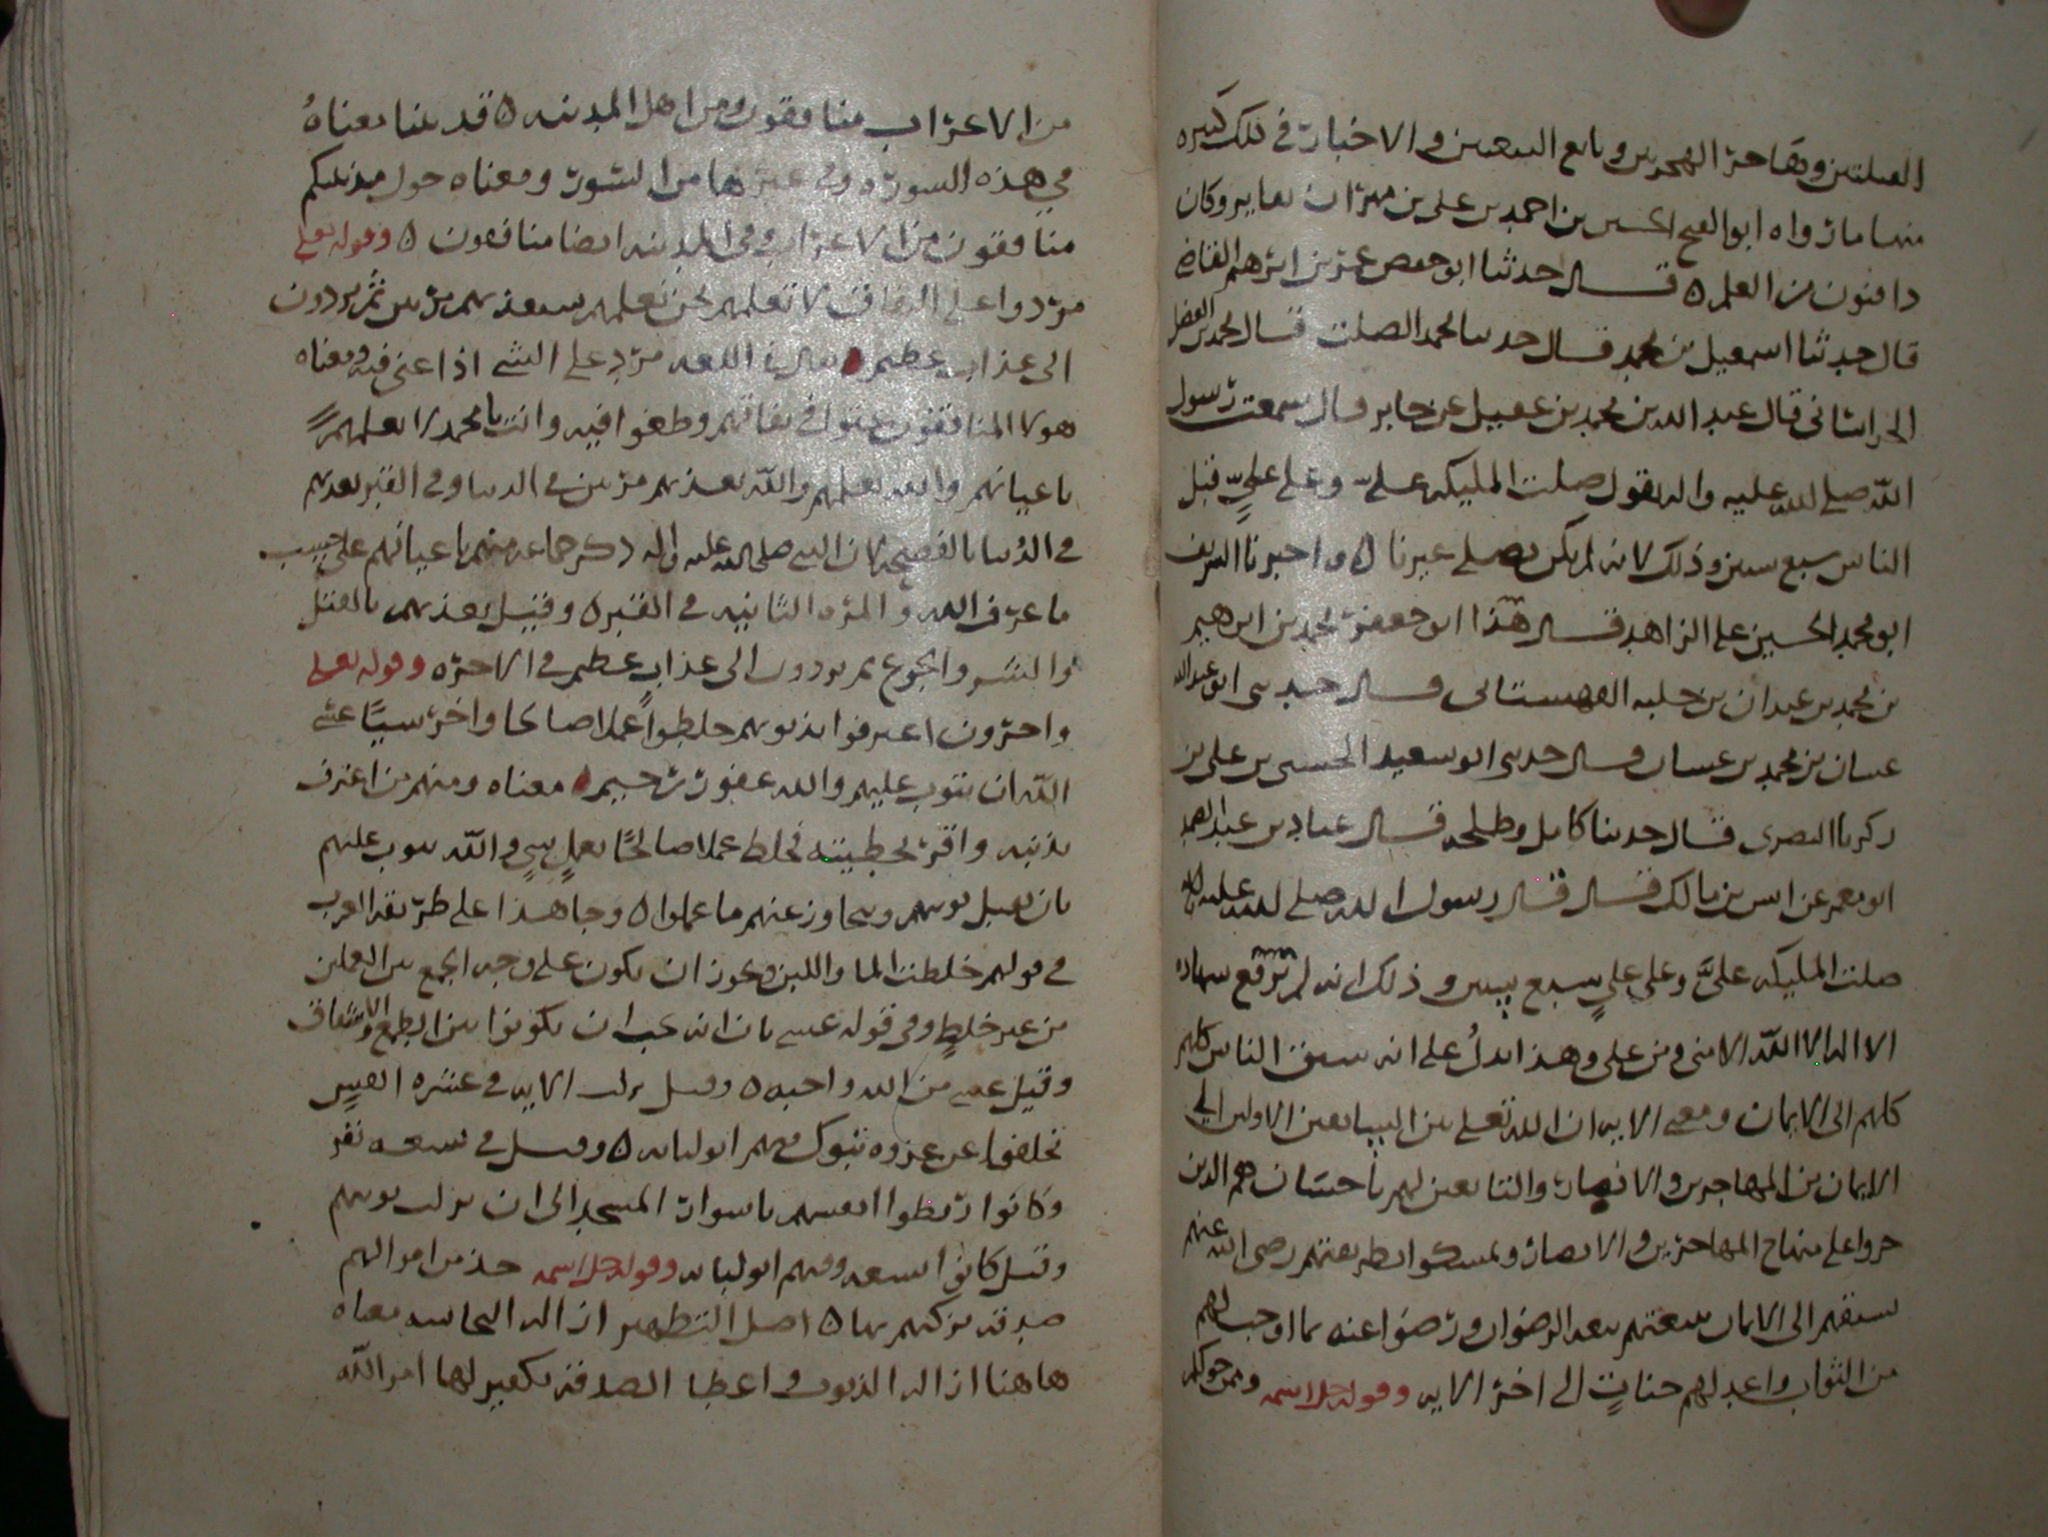 القبلتين وهاجر الهجرتين وبايع البيعتين والاخبار في ذلك كثيره
منها ما رواه ابو الفتح الحسين بن احمد بن علي بن مهران وكان
ذا فنون من العلم ٥ قال حدثنا ابو حفص عمر بن ابرهيم القاضي
قال حدثنا اسمعيل بن محمد قال حدثنا محمد الصلت قال محمد بن الفضل
الخراساني قال عبد الله بن محمد بن عقيل عن جابر قال سمعت رسول
الله صلى الله عليه واله يقول صلت المليكه علىّ وعلى عليٍّ قبل
الناس سبع سنين وذلك لانه لم يكن يصلي غيرنا ٥ واخبرنا الشريف
ابو محمد الحسين علي الزاهد قال هذا ابو جعفر محمد بن ابرهيم
بن محمد بن عبدان بن القهستاني قال حدثني ابو عبد الله
غسان بن محمد بن غسان قال حدثني ابو سعيد الحسن بن علي بن
زكريا البصري قال حدثنا كامل وطلحه قال عباد بن عبد الصمد
ابو معمر عن انس بن مالك قال قال رسول الله صلى الله عليه واله
صلت المليكه علىَّ وعلى عليٍ سبع سنين وذلك انه لم ترفع شهاده
الا اله الا الله الا مني ومن علي وهذا يدلُ على انه سبق الناس كلهم
كلهم الى الايمان ومعنى الايه ان الله تعلى بين السابقين الاولين الى
الايمان من المهاجرين والانصار والتابعين لهم باحسان هم الذين
جروا على منهاج المهاجرين والانصار وتمسكوا بطريقتهم رضي الله عنهم
بسبقهم الى الايمان بيعتهم بيعه الرضوان ورضوا عنه بما اوجب لهم
من الثواب واعد لهم جناتٍ الى اخر الايه وقوله جل اسمه وممن حولكم
من الاعراب منافقون ومن اهل المدينه ٥ قد بينا معناهُ
في هذه السوره وفي غيرها من السور ومعناه حول مدينتكم
منافقون من الاعراب وفي المدينه ايضا منافقون ٥ وقوله تعلى
مردوا على النفاق لا تعلمهم نحن نعلمهم سنعذبهم مرتين ثم يردون
الى عذاب عظيم يقال في اللغه مرد على الشي اذا عتى فيه ومعناه
هولا المنافقون عتوا في نفاقهم وطغوا فيه وانت يا محمد لا تعلمهم
باعيانهم والله يعلمهم والله يعذبهم مرتين في الدنيا وفي القبر يعذبهم
في الدُنيا بالفضيحه لان النبي صلى الله عليه واله ذكر جماعه منهم باعيانهم على حسب
ما عرف الله والمره الثانيه في القبر ٥ وقيل يعذبهم بالقتل
والسَبي والجوع ثم يردون الى عذابٍ عظيم في الاخره وقوله تعلى
واخرون اعترفوا بذنوبهم خلطوا عملا صالحا واخر سيّا عسى
الله ان يتوب عليهم والله غفور رحيم معناه ومنهم من اعترف
بذنبه واقر بخطيته فخلط عملا صالحًا بعملٍ سيٍ والله يتوب عليهم
بان يقبل توبتهم ويتجاوز عنهم ما عملوا ٥ وجا هذا على طريقه العرب
في قولهم خلطت الما واللبن ويجوز ان يكون على وجه الجمع بين العملين
من غير خلطٍ وفي قوله عسى بان انه يجب ان يكونوا بين الطمع والاشفاق
وقيل عسى من الله واجبه ٥ وقيل نزلت الايه في عشره انفسٍ
تخلفوا عن غزوه تبوك فمنهم ابو لبابه ٥ وقيل في سبعه نفر
وكانوا ربطوا انفسهم باسوار المسجد الى ان نزلت توبتهم
وقيل كانوا تسعه وفيهم ابو لبابه وقوله جل اسمه خذ من اموالهم
صدقه تزكيهم بها ٥ اصل التطهير ازاله النجاسه معناه
هاهنا ازاله الذنوب واعطا الصدقه تكفير لها امر الله